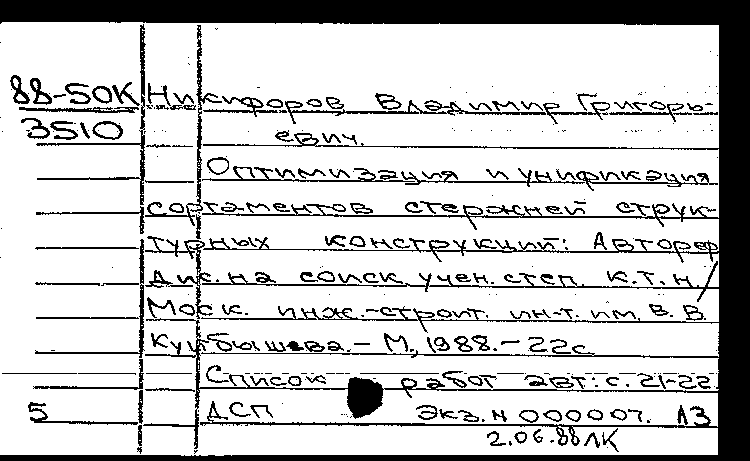 88-50К Никифоров Владимир Григорь-
3510 евич.
Оптимизация и унификация
сортаментов стержней струк-
турных конструкций: Автореф
дис. на соиск. учен. степ. к.т.н./
Моск. инж.-строит. ин-т. им. В. В.
Куйбышева. - М., 1988. - 22с
Список работ авт.: с. 21-22.
5 ДСП Экз. н 000007. АЗ
2.06.88 ЛК